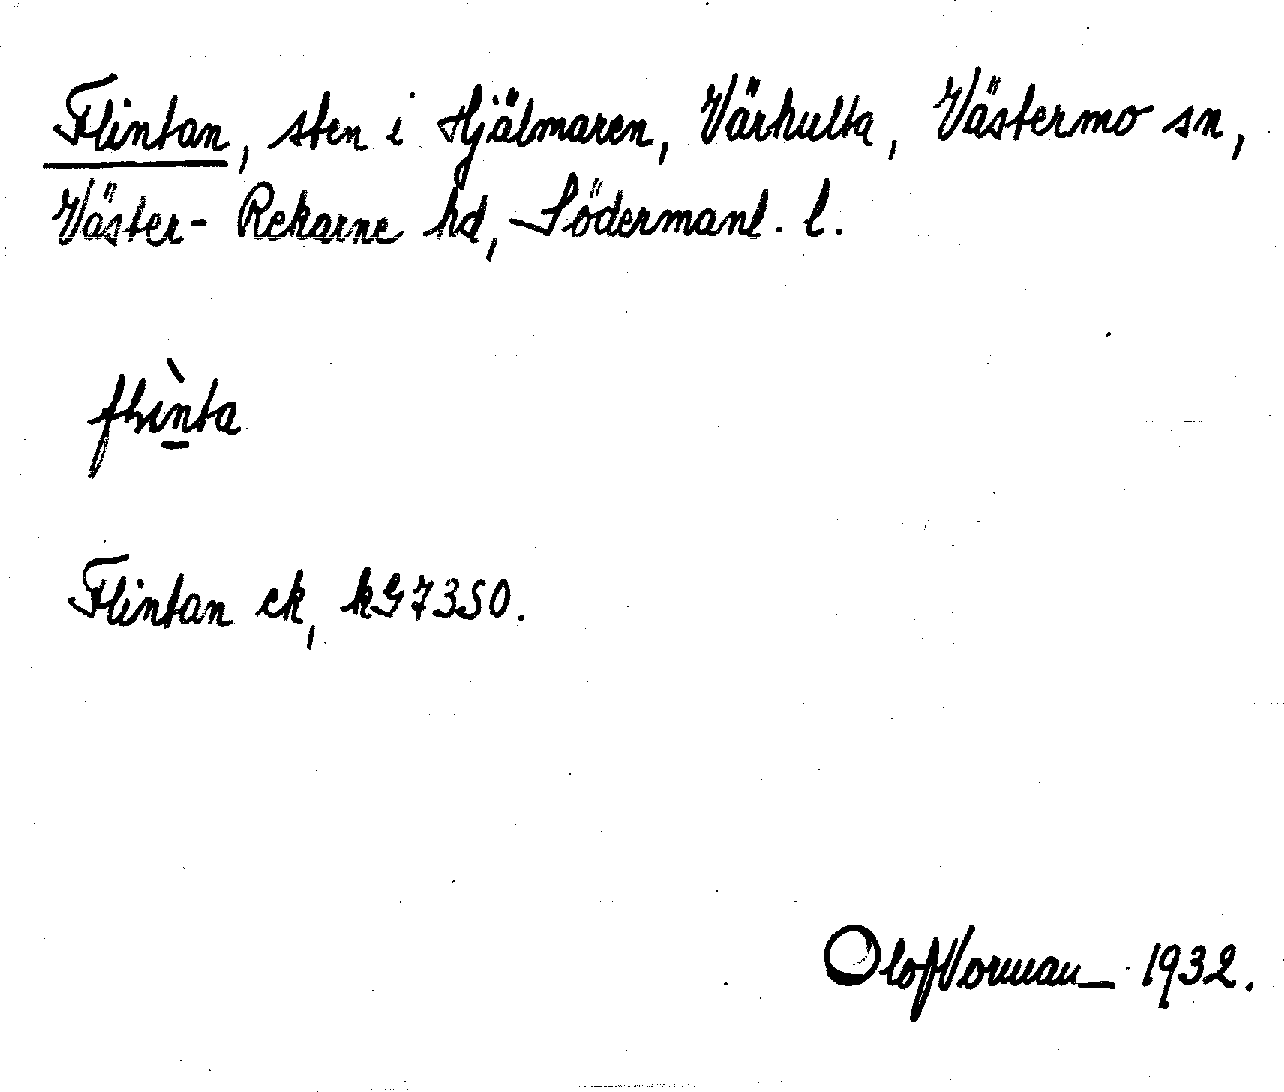 Flintan, sten i Hjälmaren, Värhulta, Västermo sn,
Väster-Rekarne hd, Södermanl. l.
flìn̲ta
Flintan ek, kG7350.
Olof Norman 1932.